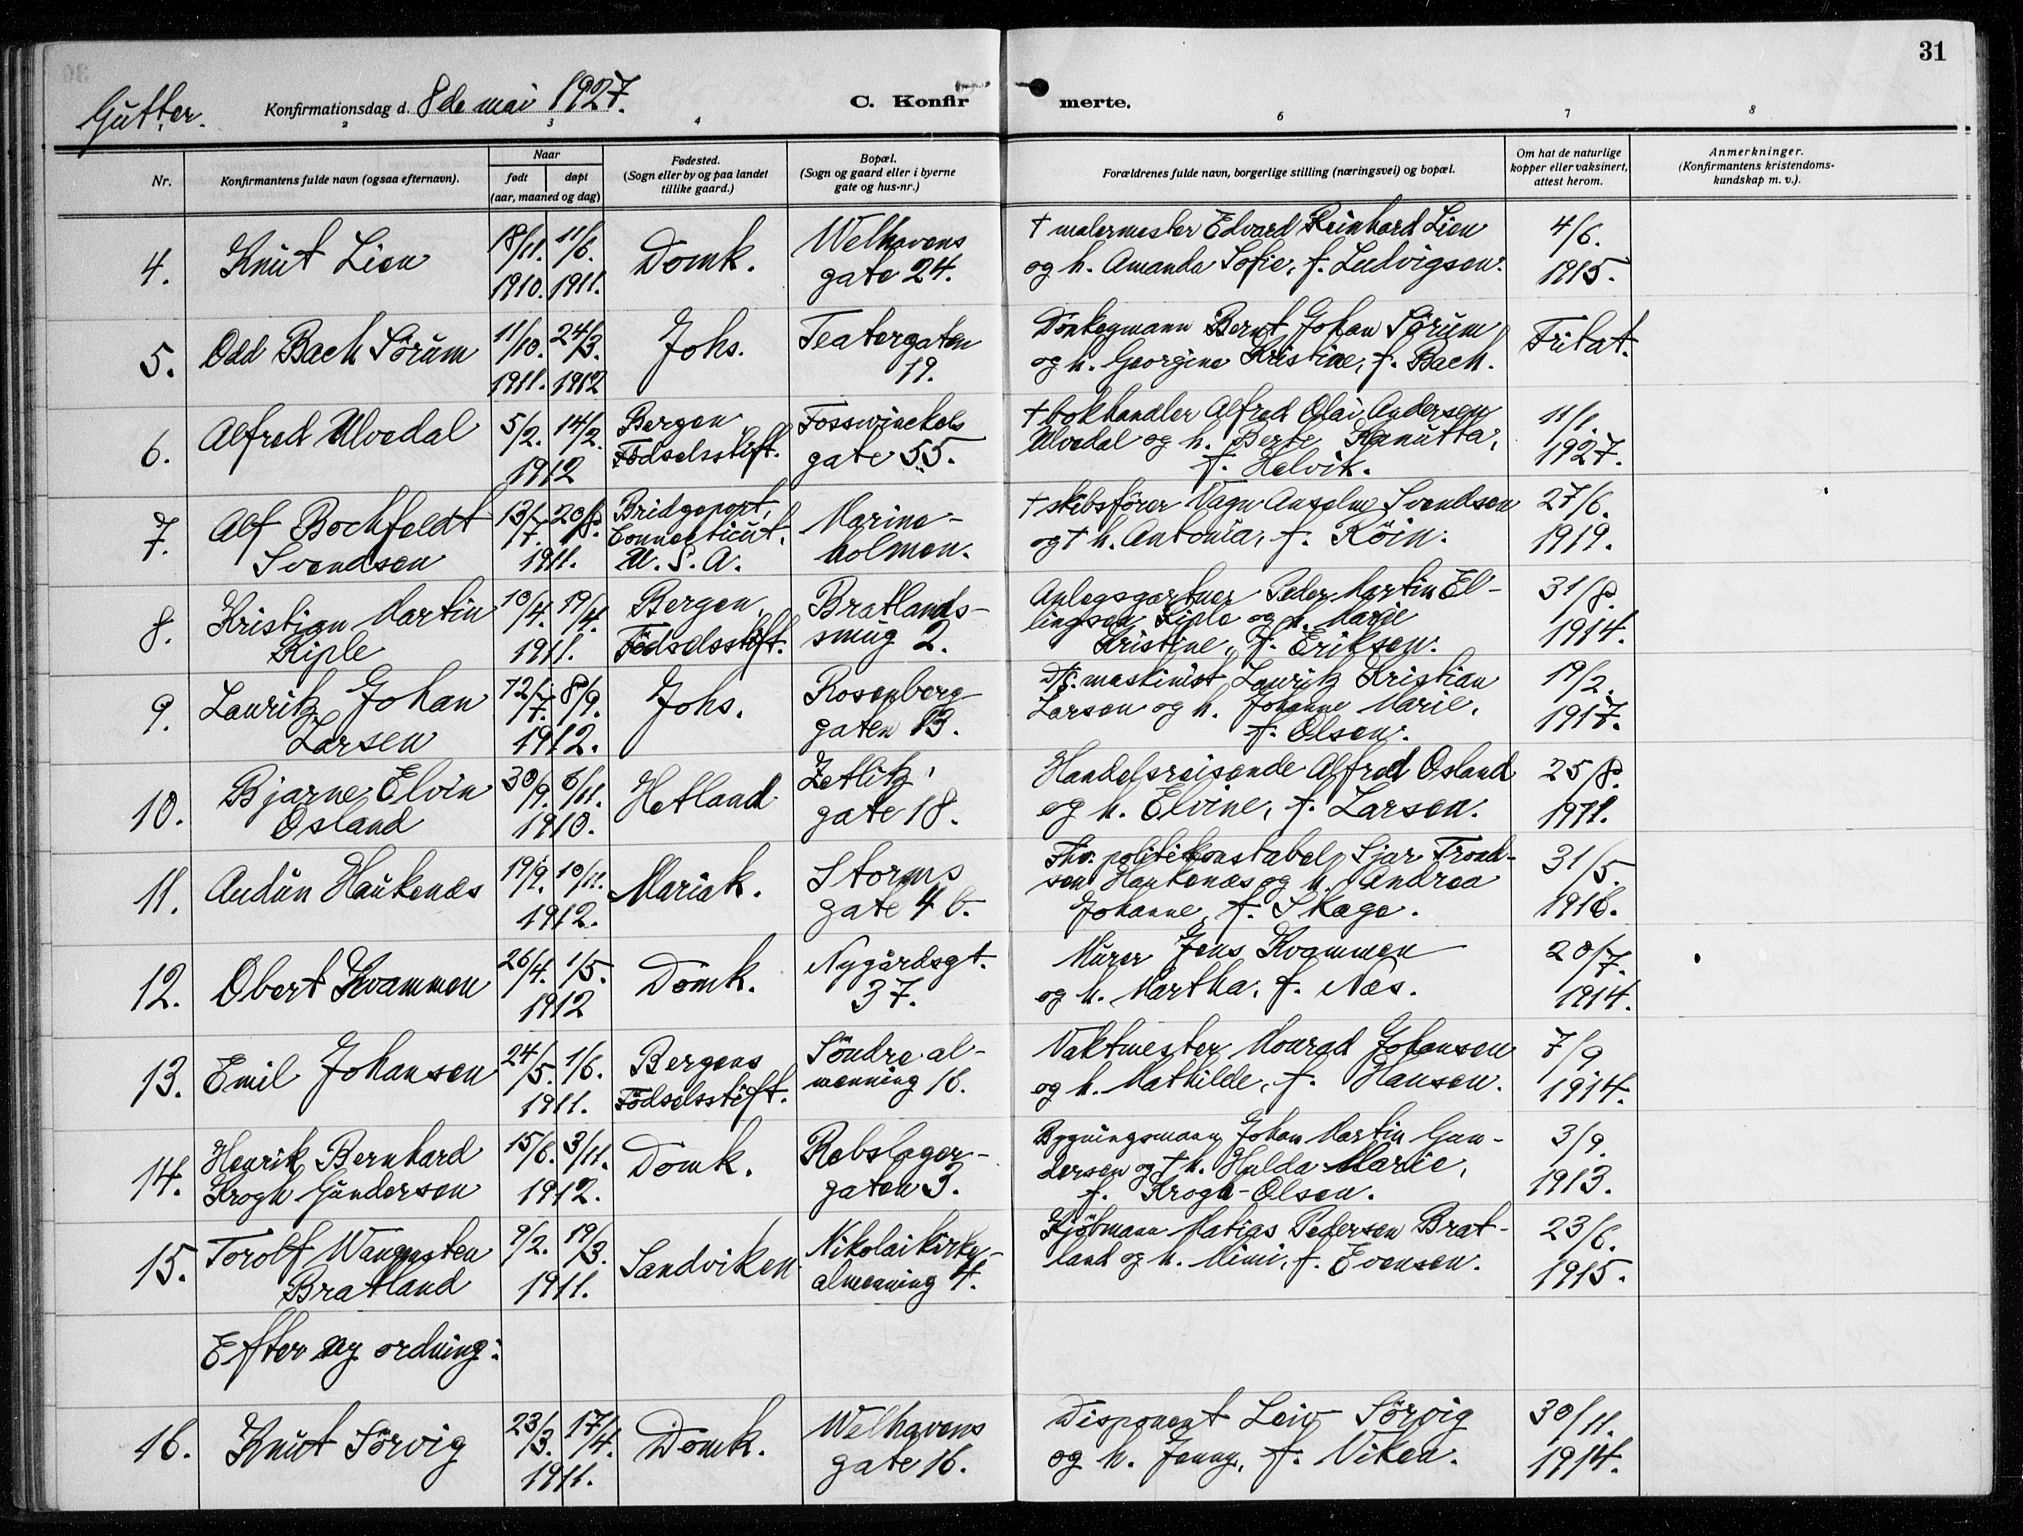 31
Gutter.
Konfirmationsdag d. 8de mai 1927.
C. Konfirmerte.
2 3 4 6 7 8
Nr.
Konfirmantens fulde navn (ogsaa efternavn).
Naar
født
døpt
(aar, maaned og dag)
Fødested.
(Sogn eller by og paa landet
tillike gaard.)
Bopæl.
(Sogn og gaard eller i byerne
gate og hus-nr.)
Forældrenes fulde navn, borgerlige stilling (næringsvei) og bopæl.
Om hat de naturlige
kopper eller vaksinert,
attest herom.
Anmerkninger.
(Konfirmantens kristendoms-
kundskap m. v.).
4. Knut Lien 18/11. 1910. 11/6. 1911. Domk. Welhavens
gate 24.
† malermester Edvard Reinhard Lien
og h. Amanda Sofie, f. Ludvigsen.
4/6.
1915.
5. Odd Bach Sörum 11/10. 1911. 24/3. 1912 Johs. Teatergaten
19.
Donkeymann Bernt Johan Sörum
og h. Georgine Kristine, f. Bach.
Fritat.
6. Alfred Ulvedal 5/2. 14/2. 1912
Bergen
Födselsstift.
Fosswinckels
gate 55.
† bokhandler Alfred Olai Andersen
Ulvedal og h. Berte Kanutta,
f. Helvik.
11/1.
1927.
7. Alf Bochfeldt
Svendsen
13/7. 20/8. 1911.
Bridgeport,
Connecticut.
U. S. A.
Marine-
holmen.
† skibsförer Vagn Anselm Svendsen
og † h. Antonia, f. Röin.
27/6.
1919.
8. Kristian Martin
Kiple
10/4. 19/4. 1911.
Bergen,
Födselsstift.
Bratlands-
smug 2.
Anlegsgartner Peder Martin El-
lingsen Kiple og h. Marie
Kristine, f. Eriksen.
31/8.
1914.
9. Lauritz Johan
Larsen
12/7. 8/9. 1912.
Johs.
Rosenberg-
gaten 13.
D/s. maskinist Lauritz Kristian
Larsen og h. Johanne Marie,
f. Olsen.
19/2.
1917.
10. Bjarne Elvin
Osland
30/9. 6/11. 1910.
Hetland
Zetlitz'
gate 18.
Handelsreisende Alfred Osland
og h. Elvine, f. Larsen.
25/8.
1911.
11. Audun Haukenæs
19/9. 10/11. 1912.
Mariak.
Storms
gate 4 b.
Fhv. politikonstabel Sjar Trond-
sen Haukenæs og h. Andrea
Johanne, f. Skage.
31/5.
1916.
12. Obert Kvammen
26/4. 1/5. 1912
Domk.
Nygårdsgt.
37.
Murer Jens Kvammen
og h. Martha, f. Næs.
20/7.
1914.
13. Emil Johansen
24/5. 1/6. 1911.
Bergens
Födselsstift.
Söndre al-
menning 16.
Vaktmester Monrad Johansen
og h. Mathilde, f. Hansen.
7/9
1914.
14. Henrik Bernhard
Krogh Gundersen
15/6. 3/11. 1912.
Domk.
Rebslager-
gaten 3.
Bygningsmann Johan Martin Gun-
dersen og † h. Hulda Marie,
f. Krogh-Olsen.
3/9.
1913.
15. Torolf Wangsten
Bratland
9/2. 19/3. 1911.
Sandviken
Nikolaikirke-
almenning 4.
Kjöbmann Matias Pedersen Brat-
land og h. Mimi, f. Evensen.
23/6.
1915.
Efter ny ordning:
16. Knut Sörvig
23/3. 17/4. 1911.
Domk.
Welhavens
gate 16.
Disponent Leiv Sörvig
og h. Jenny, f. Viken.
30/11.
1914.